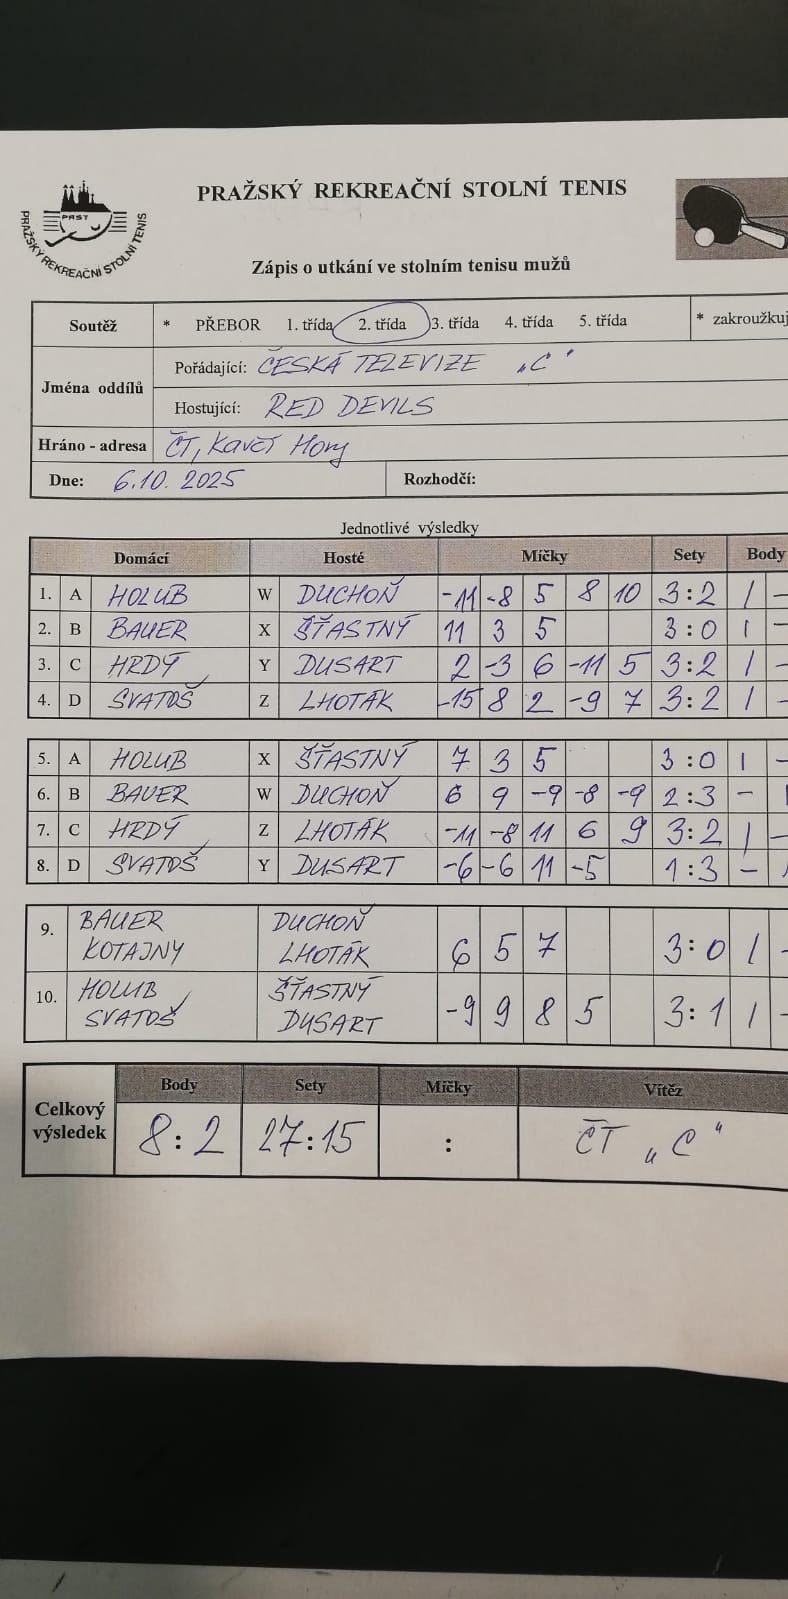 PRAŽSKÝ REKREAČNÍ STOLNÍ TENIS
PRST
PRAŽSKÝ REKREAČNÍ STOLNÍ TENIS
Zápis o utkání ve stolním tenisu mužů
Soutěž * PŘEBOR 1. třída 2. třída 3. třída 4. třída 5. třída * zakroužkuj
Jména oddílů
Pořádající: ČESKÁ TELEVIZE „C“
Hostující: RED DEVILS
Hráno - adresa ČT, Kavčí Hory
Dne: 6.10. 2025 Rozhodčí:
Jednotlivé výsledky
Domácí Hosté Míčky Sety Body
1. A HOLUB W DUCHOŇ -11 -8 5 8 10 3:2 1 -
2. B BAUER X ŠŤASTNÝ 11 3 5 3:0 1 -
3. C HRDÝ Y DUSART 2 -3 6 -11 5 3:2 1 -
4. D SVATOŠ Z LHOTÁK -15 8 2 -9 7 3:2 1 -
5. A HOLUB X ŠŤASTNÝ 7 3 5 3:0 1 -
6. B BAUER W DUCHOŇ 6 9 -9 -8 -9 2:3 - 1
7. C HRDÝ Z LHOTÁK -11 -8 11 6 9 3:2 1 -
8. D SVATOŠ Y DUSART -6 -6 11 -5 1:3 - 1
9. BAUER DUCHOŇ
KOTAJNY LHOTÁK 6 5 7 3:0 1 -
10. HOLUB ŠŤASTNÝ
SVATOŠ DUSART -9 9 8 5 3:1 1 -
Body Sety Míčky Vítěz
Celkový
výsledek 8:2 27:15 : ČT „C“